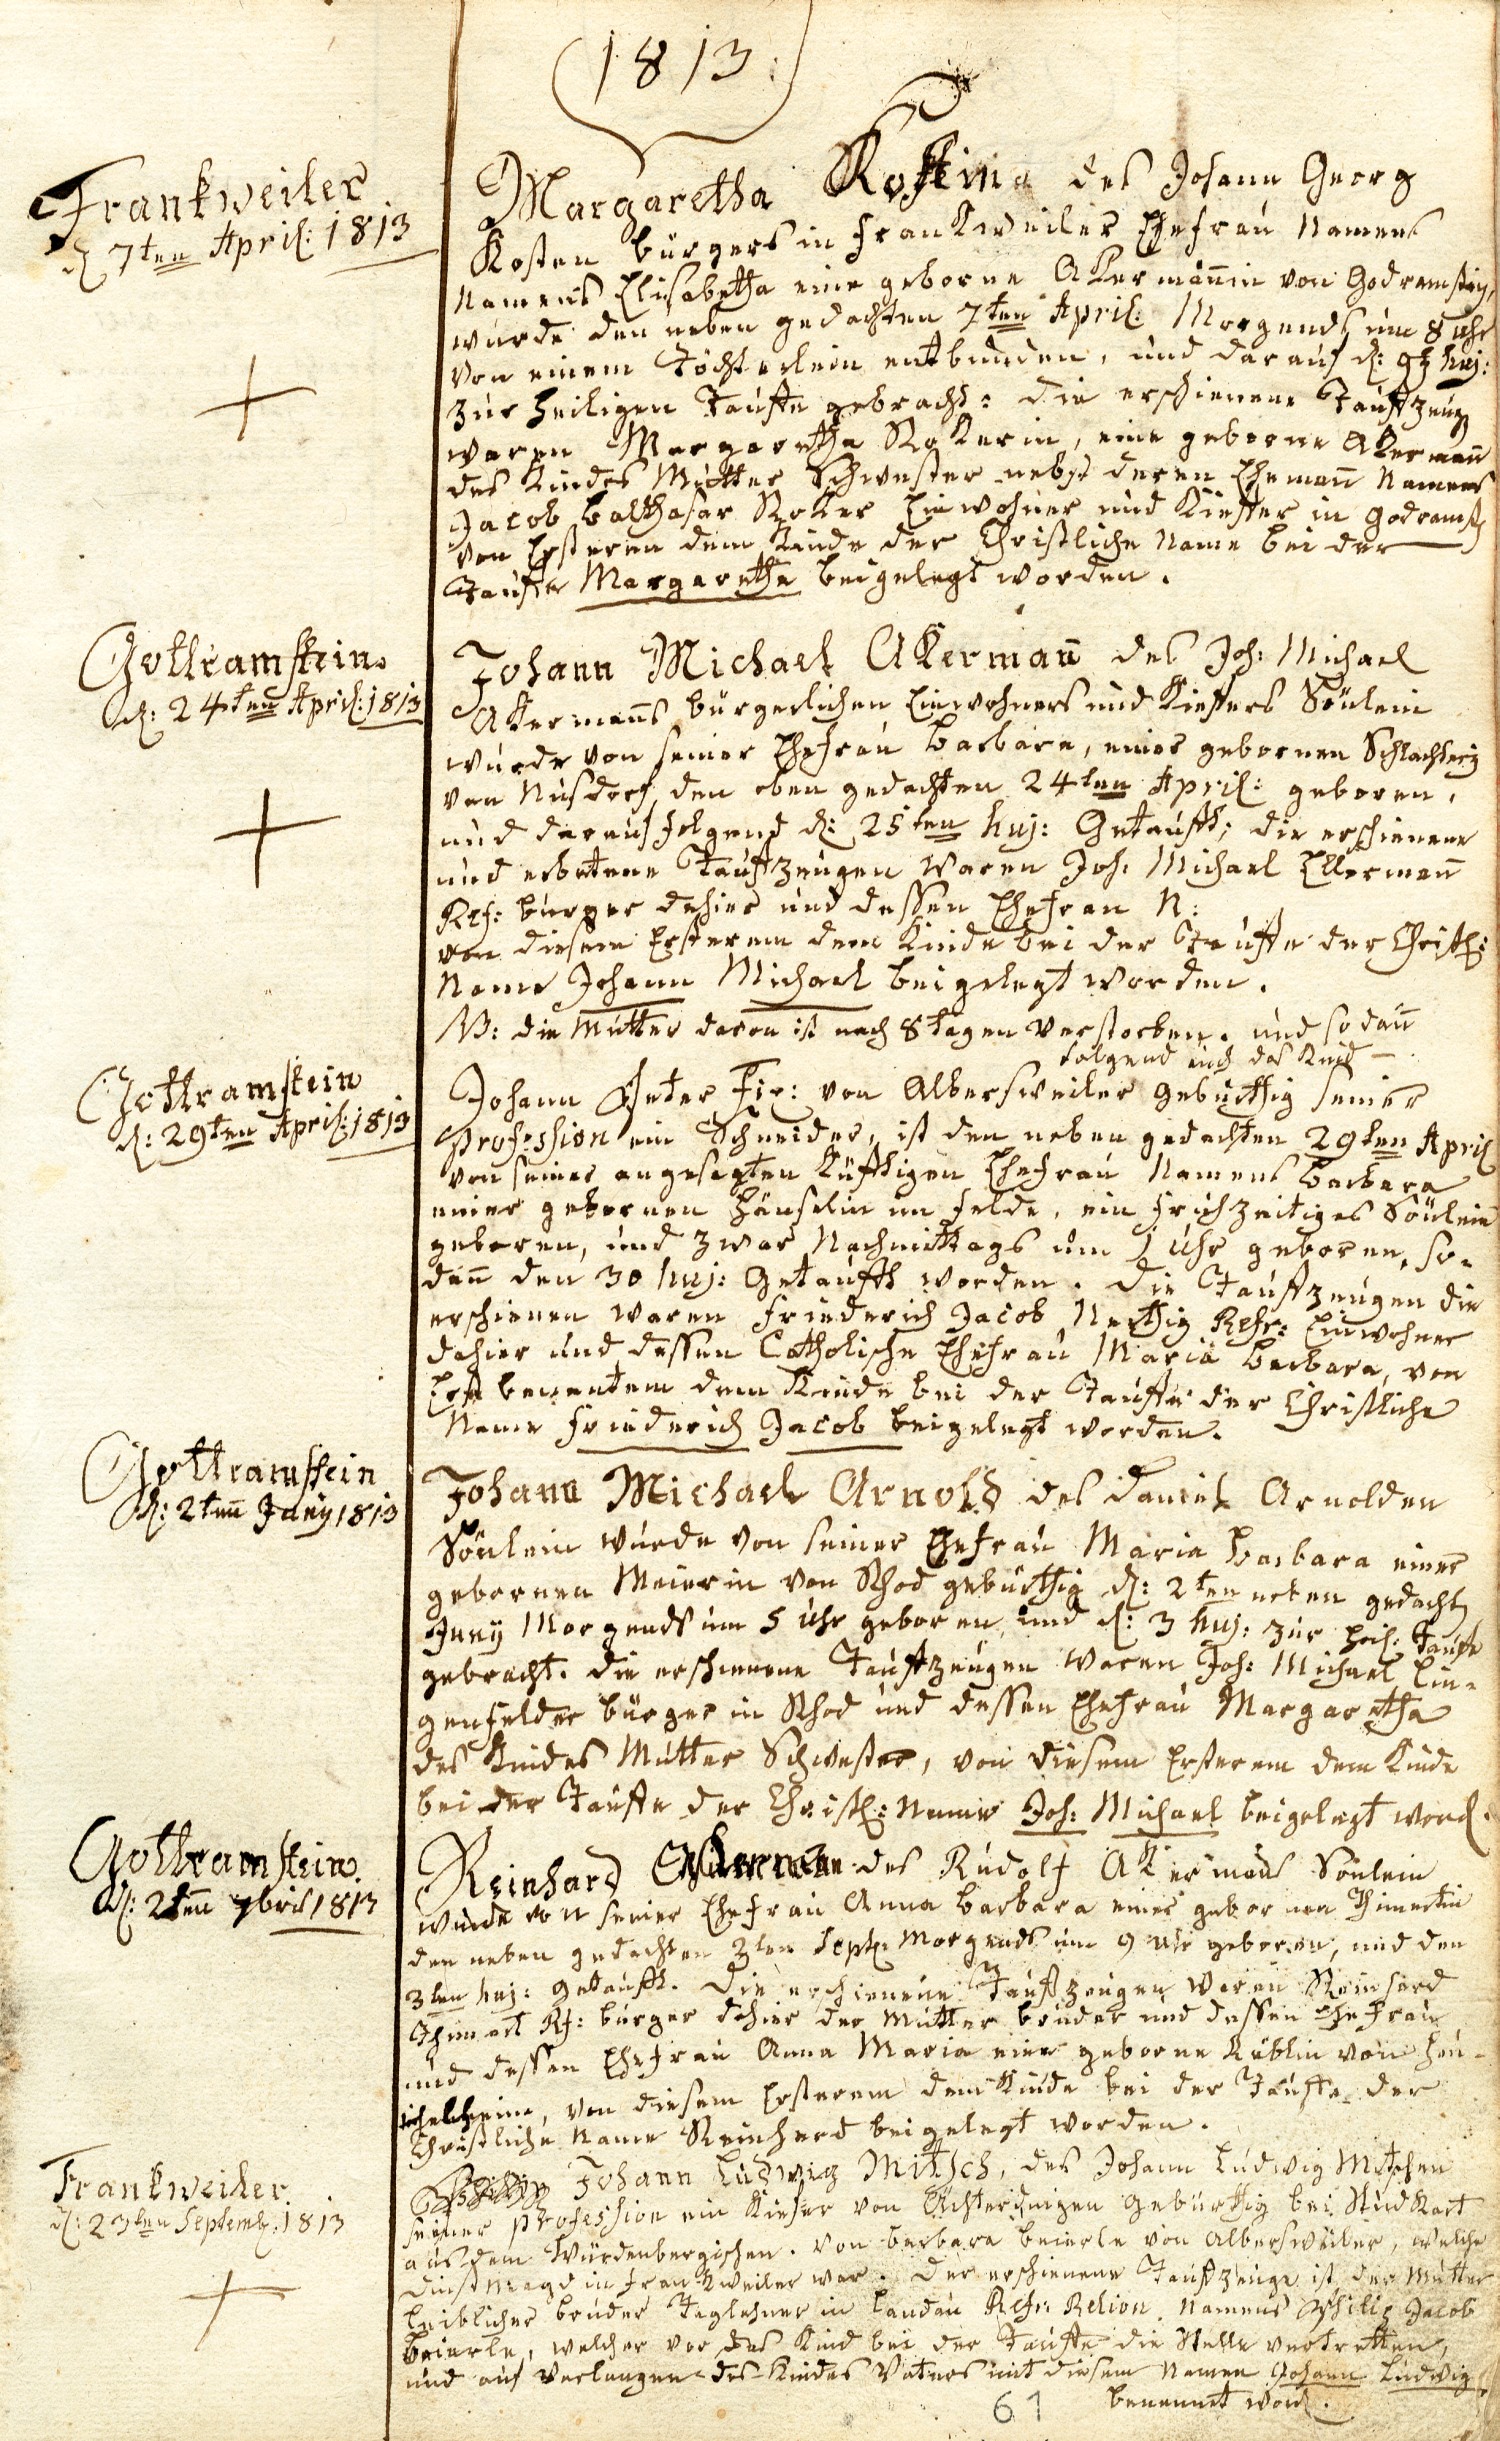 1813:
Frankweiler
d. 7ten April: 1813
Margaretha Kostina des Johann Georg
Kosten bürgers in Frankweiler Ehefrau Namens
Namens Elisabetha eine geborne Akermännin von Godramstein,
wurde den neben gedachten 7ten April: Morgends um 8 Uhr
von einem Töchterlein entbunden, und darauf d: 9t huj:
zur heiligen Tauffe gebracht: die erschienene Taufzeugen
waren Margaretha Rokerin, eine geborne Akermann
des Kindes Mutter Schwester nebst deren Ehemann Namens
Jacob Balthasar Roker Einwohner und Kieffer in Godramst.
von Ersteren dem Kinde der Christliche Name bei der
Tauffe Margaretha beigelegt worden.
Gottramstein.
d: 24ten April: 1813
Johann Michael Akermann des Joh: Michael
Akermanns bürgerlichen Einwohners und Kieffers Söulein
wurde von seiner Ehefrau Barbara, einer gebornen Schlachterin
von Nusdorf, den oben gedachten 24ten April: geboren,
und darauf folgend d: 25ten huj: Getaufft; die erschienene
und erbetene Taufzeugen waren Joh. Michael Ellermann
Ref: burger dahier und dessen Ehefrau N:
von diesem Ersterem dem Kinde bei der Tauffe der Christl:
Name Johann Michael beigelegt worden.
NB: die Mutter davon ist nach 8 tagen verstorben. und so dann
folgend auch das Kind —
Gottramstein
d: 29ten April: 1813
Johann Peter Fix: von Albersweiler gebürthig seiner
Profession ein Schneider, ist den neben gedachten 29ten April
von seiner angesagten künftigen Ehefrau Namens Barbara
einer gebornen Hänselin im Felde, ein frühzeitiges Söulein
geboren, und zwar Nachmittags um 1 Uhr geboren, so-
dann den 30 huj: Getaufft worden. Die Taufzeugen die
erschienen waren Friederich Jacob Nerthig Refr: Einwohner
dahier und dessen Catholische Ehefrau Maria Barbara, von
Erst benentem dem Kinde bei der Tauffe der Christliche
Name Friederich Jacob beigelegt worden.
Gottramstein
d: 2ten Juny 1813
Johann Michael Arnold des Daniel Arnolden
Söulein wurde von seiner Ehefrau Maria Barbara einer
gebornen Meierin von Rhod gebürthig d: 2ten neben gedacht
Juny Morgends um 5 Uhr geboren, und d: 3 huj: zur heil: Tauffe
gebracht. die erschienene Taufzeugen waren Joh: Michael Lin-
genfelder bürger in Rhod und dessen Ehefrau Margaretha
des Kindes Mutter Schwester, von diesem Ersterem dem Kinde
bei der Tauffe der Christl: Name Joh: Michael beigelegt word.
Gottramstein.
d: 2ten 7bris 1813
Reinhard Akermann des Rudolf Akermans Söulein
wurde von seiner Ehefrau Anna Barbara einer gebornen Thimertin
den neben gedachten 2ten Sept: Morgends um 9 Uhr geboren, und den
3ten huj: getaufft. Die erschienene Taufzeugen waren Reinhard
Thimert Rf: burger dahier der Mutter bruder und dessen Ehefrau
und dessen Ehefrau Anna Maria eine geborne Rüblin von Heu-
chelheim, von diesem Ersterem dem Kinde bei der Tauffe der
Christliche Name Reinhard beigelegt worden.
Frankweiler.
d: 23ten Septemb: 1813
Johann Ludwig Mitsch, des Johann Ludwig Mitschen
seiner Profession ein Kiefer von Achterdingen Gebürthig bei Studkart
aus dem Würdenbergischen. von Barbara Beierle von Albersweiler, welche
Dinstmagd in Frankweiler war. Der erschienene Taufzeuge ist der Mutter
leiblicher bruder Taglehner in Landau Refr: Relion. Namens Philip Jacob
Beierle, welcher vor das Kind bei der Tauffe die Stelle vertretten,
und auf Verlangen des Kindes Vaters mit diesem Namen Johann Ludwig
benennet word.
61